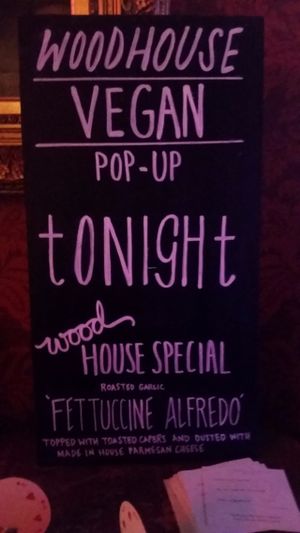 WOODHOUSE
VEGAN
POP-UP
tONIGHt
wood
HOUSE SPECIAL
ROASTED GARLIC
'FETTUCCINE ALFREDO'
TOPPED WITH TOASTED CAPERS AND DUSTED WITH
MADE IN HOUSE PARMESAN CHEESE